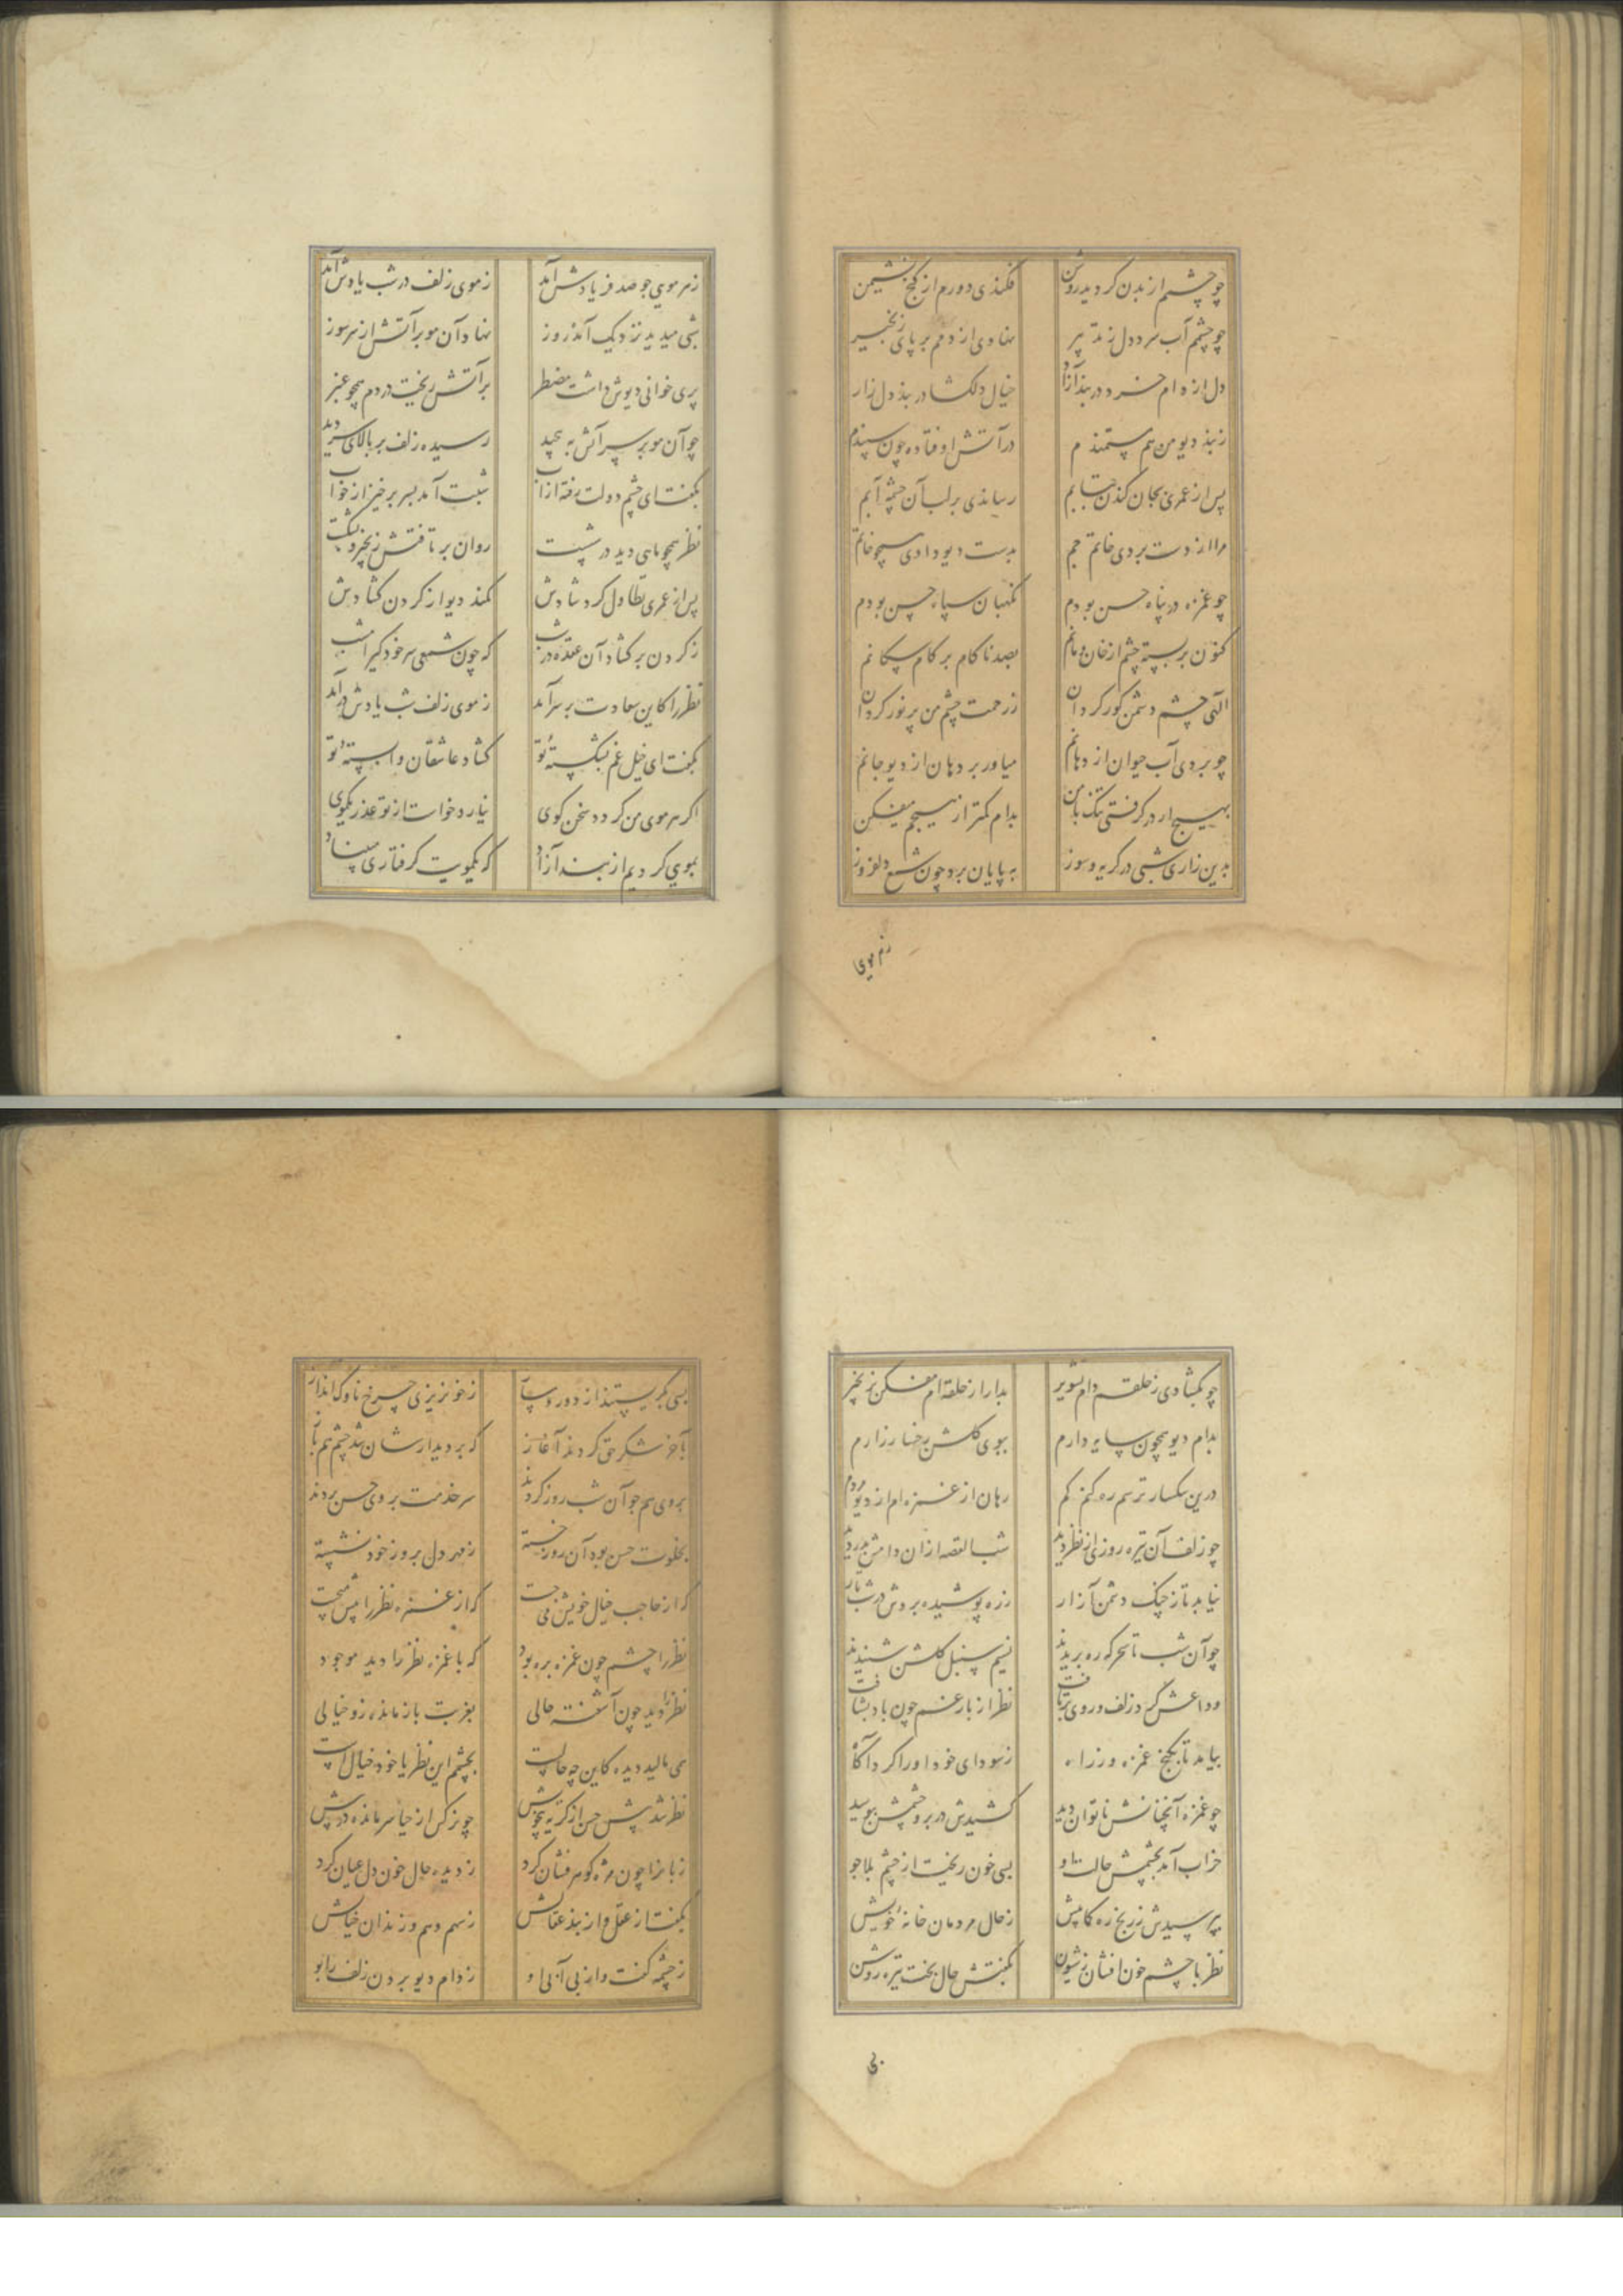 چو چشم از بدن کردید روشن فکندی دورم از کنج نشیمن
چو چشم آب سرد دل زند تیر نهادی از دمم بر پای زنجیر
دل از دام خرد در بند آزار خیال دلکشا در بند دل زار
ز بند دیو من هم مستمندم در آتش اوفتاده چون سپندم
پس از عمری بجان کندن شتابم رساندی بر لب آن چشمه آبم
مرا از دست بردی خاتم جم بدست دیو دادی همچو خاتم
چو غمزه در پناه حسن بودم نکهبان سپاه حسن بودم
کنون بر بسته چشم از خان و مانم بصد ناکام بر کام سکانم
الهی چشم دشمن کور کردان ز رحمت چشم من پر نور کردان
چو بردی آب حیوان از دهانم میاور بر دهان از دیو جانم
بهیچ ار در کرفتی تنک با من بدام کمتر از هیچم میفکن
بدین زاری شبی در کریه و سوز به پایان برد چون شمع دلفروز
ز هر موی
ز هر موی جو صد فریادش آمد ز موی زلف در شب یادش آمد
شبی میدید نزدیک آمد روز نهاد آن مو بر آتش از سر سوز
پری خوانی دیوش داشت مضطر بر آتش ریخت در دم همچو عنبر
چو آن مو بر سر آتش به پیچید رسیده زلف بر بالای سر دید
بکفت ای چشم دولت رفته از آب شبت آمد بسر برخیز از خواب
نظر همچو ماهی دید در شست روان بر تافتش زنجیر و بشکست
پس از عمری تطاول کرد شادش کمند دیو از کردن کشادش
ز کردن بر کشاد آن عقده در شب که چون شمعی سر خود کیر امشب
نظر را کاین سعادت بر سر آمد ز موی زلف شب یادش در آمد
بکفت ای خیل غم بشکستهٔ تو کشاد عاشقان وابستهٔ تو
اکر هر موی من کردد سخن کوی نیارد خواست از تو عذر یکموی
بموی کردیم از بند آزاد که یکمویت کرفتاری مبیناد
چو بکشادی ز حلقم دام تسویر بدار از حلقه ام مفکن بزنجیر
بدام دیو همچون سایه دارم ببوی کلشن رخسار زارم
درین سکسار ترسم ره کنم کم رهان از غمزه ام از دیو مردم
چو زلف آن تیره روزی از نظر دید شب القصه از ان دامش بدزدید
نیابد تا ز چنک دشمن آزار زره پوشیده بردش در شب تار
چو آن شب تا سحرکه ره بریدند نسیم سنبل کلشن شنیدند
وداعش کرد زلف و روی برتافت نظر از بار غم چون باد بشتافت
بیامد تا بکنج غمزه ور زاه ز سودای خود او را کرد آکاه
چو غمزه آنچنانش ناتوان دید کشیدش در بر و چشمش ببوسید
خراب آمد بچشمش حالت او بسی خون ریخت از چشم بلاجو
بپرسیدش ز رنج ره کما بیش ز حال مردمان خانهٔ خویش
نظر با چشم خون افشان ز شیون بکفتش حال بخت تیره روشن
بسی
بسی بکریستند از دور و پساز ز خونریزی چرخ ناوک انداز
بآخر شکر حق کردند آغاز که بر دیدارشان شد چشم هم باز
بروی هم چو آن شب روز کردند سر خدمت بروی حسن بردند
بخلوت حسن بود آن روز خسته ز مهر دل بروز خود نشسته
که از حاجب خیال خویش می جست که از غمزه نظر را پیش می جست
نظر را چشم چون غمزه بره بود که با غمزه نظر را دید موجود
نظر را دید چون آشفته حالی بغربت بازمانده زو خیالی
همی مالید دیده کاین چه حالست بچشمم این نظر یا خود خیالست
نظر شد پیش حسن از کریه بیهوش چو نرکس از حیا سر مانده در پیش
زبانرا چون مژه کوهر فشان کرد ز دیده حال خون دل عیان کرد
بکفت از عقل و از بند عتابش ز سهم وهم و زندان خیالش
ز چشمه کفت و از بی آبی او ز دام دیو بردن زلف را بو